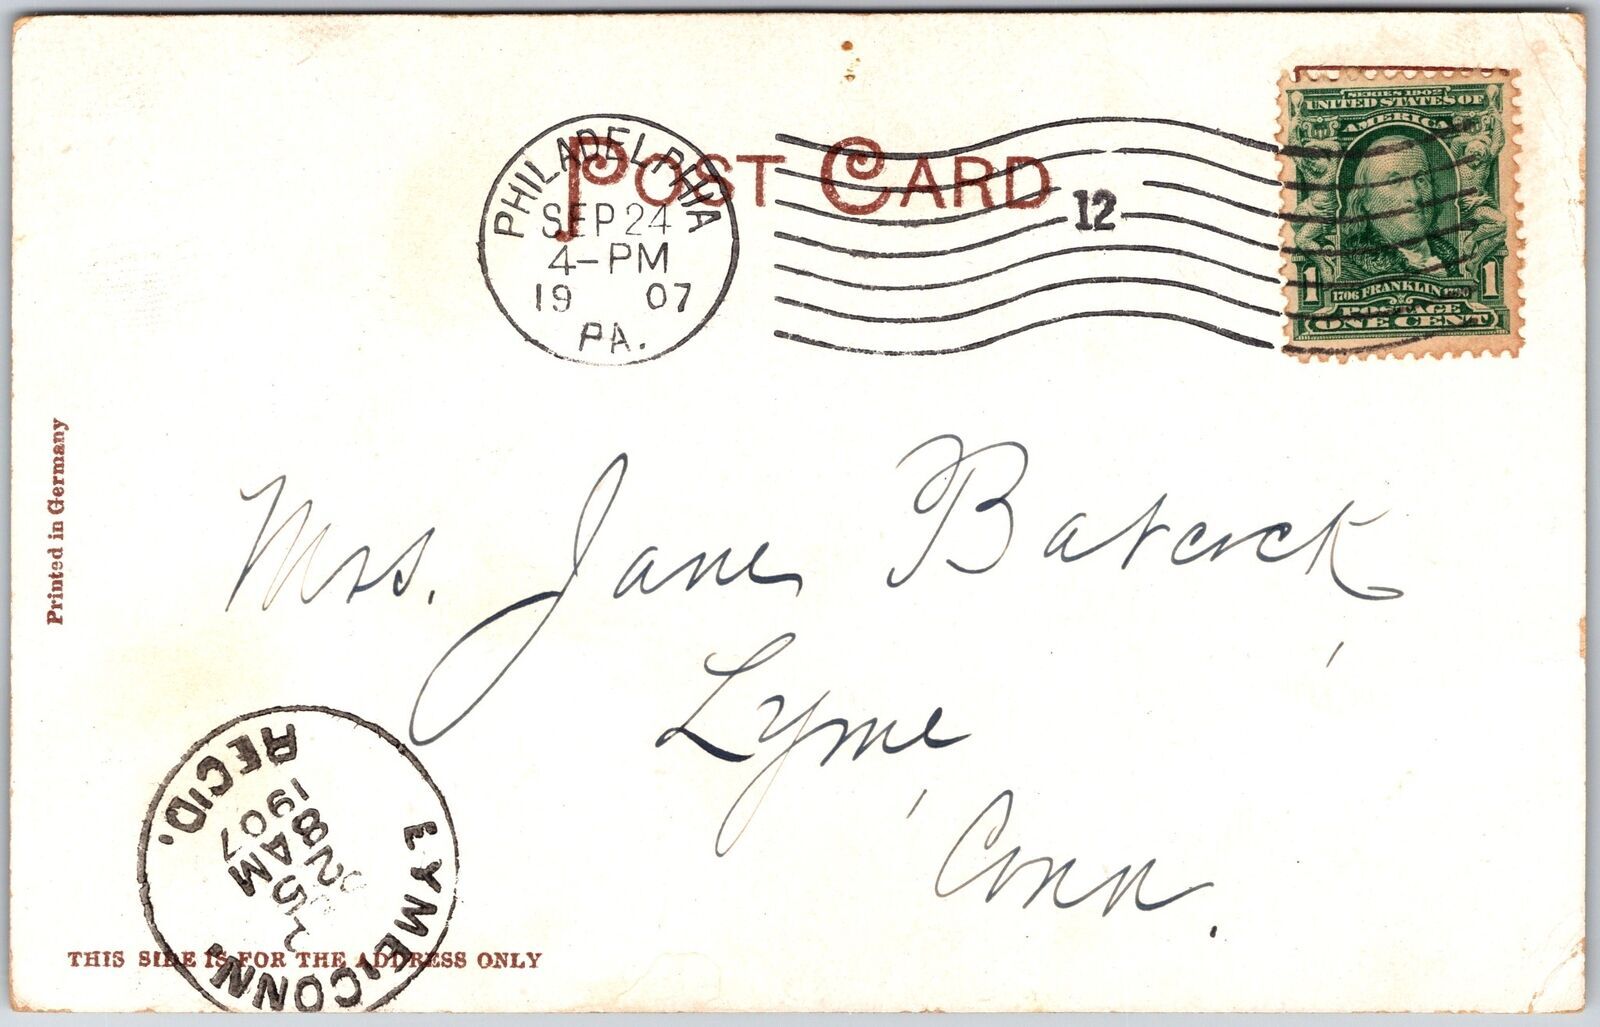 POST CARD
PHILADELPHIA
SEP 24
4-PM
19 07
PA.
12
SERIES 1902
UNITED STATES OF
AMERICA
1 1706 FRANKLIN 1790 1
POSTAGE
ONE CENT
Printed in Germany
Mrs. Jane Babcock,
Lyme,
Conn.
LYME, CONN.
25
8 AM
1907
REC'D.
THIS SIDE IS FOR THE ADDRESS ONLY